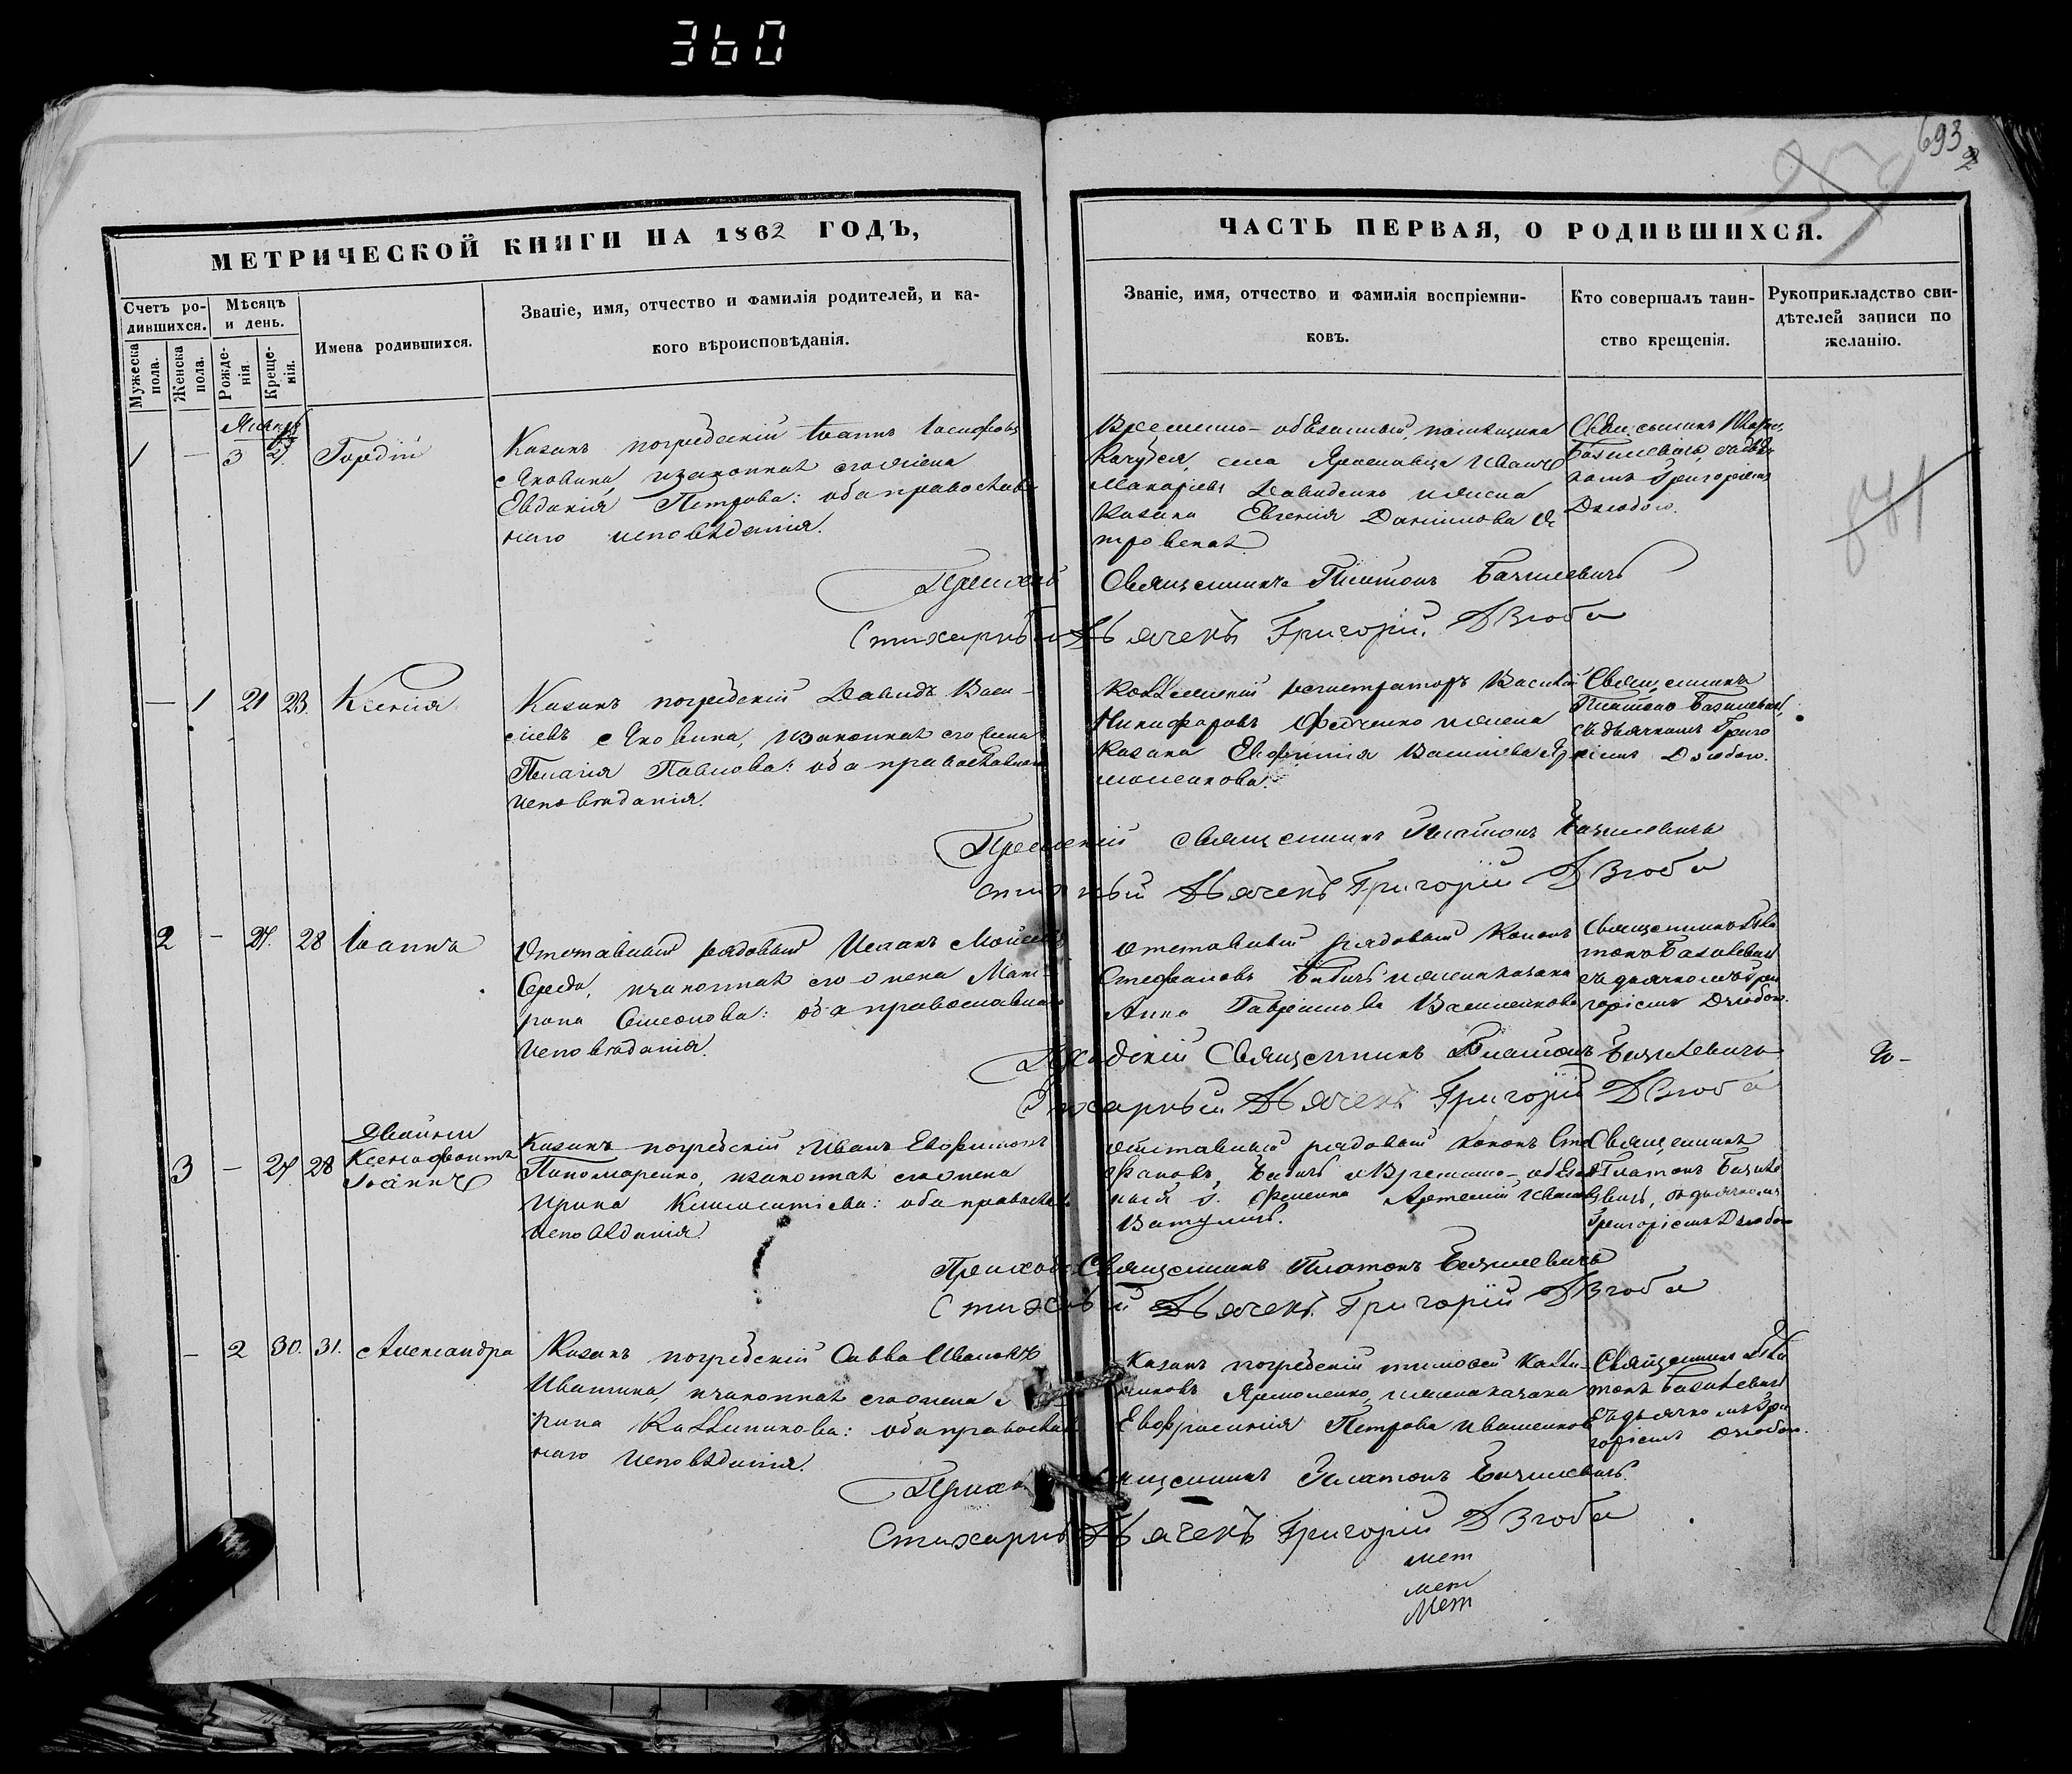 360
693
2
МЕТРИЧЕСКОЙ КНИГИ НА 1862 ГОДЪ,
Счетъ ро-
дившихся.
Мѣсяцъ
и день.
Мужеска
пола.
Женска
пола.
Рожде-
нія.
Креще-
нія.
Имена родившихся.
Званіе, имя, отчество и фамилія родителей, и ка-
кого вѣроисповѣданія.
ЧАСТЬ ПЕРВАЯ, О РОДИВШИХСЯ.
Званіе, имя, отчество и фамилія воспріемни-
ковъ.
Кто совершалъ таин-
ство крещенія.
Рукоприкладство сви-
дѣтелей записи по
желанію.
1 — 3 Гордій
Козакъ погребскій Іоаннъ Іосифовъ
Яковина, и законная его жена
Евдокія Петрова: оба православ
наго исповѣданія.
Временно-обязанный, помѣщика
Кочубея, села Ярославца Иванъ
Макаріевъ Давиденко и жена
Козака Евгенія Даніилова
Дзюбою.
Священникъ Платонъ Базилевичъ
Стихарный Дьячекъ Григорій Дзюба
— 1 21 23 Ксенія
Козакъ погребскій Давидъ Васи-
ліевъ Яковина, и законная его жена
Пелагія Павлова: оба православнаго
исповѣданія.
Коллежскій регистраторъ Василій
Никифоровъ Фойченко и жена
Козака Евфимія Василіева
Священникъ
Платонъ Базилевичъ,
съ дьячкомъ Григо
ріемъ Дзюбою.
священникъ Платонъ Базилевичъ
Дьячекъ Григорій Дзюба
2 — 27. 28 Іоаннъ
Отставный рядовый Исаакъ Моисеевъ
Середа, и законная его жена Мат-
рона Симеонова: оба православнаго
исповѣданія.
Отставный рядовый Кононъ
Стефановъ Бабичъ и жена козака
Анна Гавріилова Василенкова
Священникъ Пла
тонъ Базилевичъ
съ дьячкомъ Гри
горіемъ Дзюбою.
Священникъ Платонъ Базилевичъ
Стихарный Дьячекъ Григорій Дзюба
Двойни
3 — 27. 28 Ксенофонтъ
Іоаннъ
Козакъ погребскій Иванъ Евфимовъ
Пономаренко, и законная его жена
Ирина Климентіева: оба православ
исповѣданія.
Отставный рядовый Кононъ Сте
фановъ Бабичъ и Временно-обязан
Артемій Иванов
Ватуличъ.
Священникъ
Платонъ Базиле
вичъ, съ дьячкомъ
Григоріемъ Дзюбою
Приход Священникъ Платонъ Базилевичъ
Дьячекъ Григорій Дзюба
— 2 30. 31. Александра
Козакъ погребскій Савва Ивановъ
Ивашина, и законная его жена И
рина Каллиникова: оба православ
наго исповѣданія.
Козакъ погребскій Тимофей Калли-
никовъ Ярмоленко, и жена казака
Евфросинія Петрова Ивашенков
Священникъ Пла
тонъ Базилевичъ
съ дьячкомъ Гри
горіемъ Дзюбою.
Платонъ Базилевичъ.
Стихарный Дьячекъ Григорій Дзюба
мет
мет
Мет